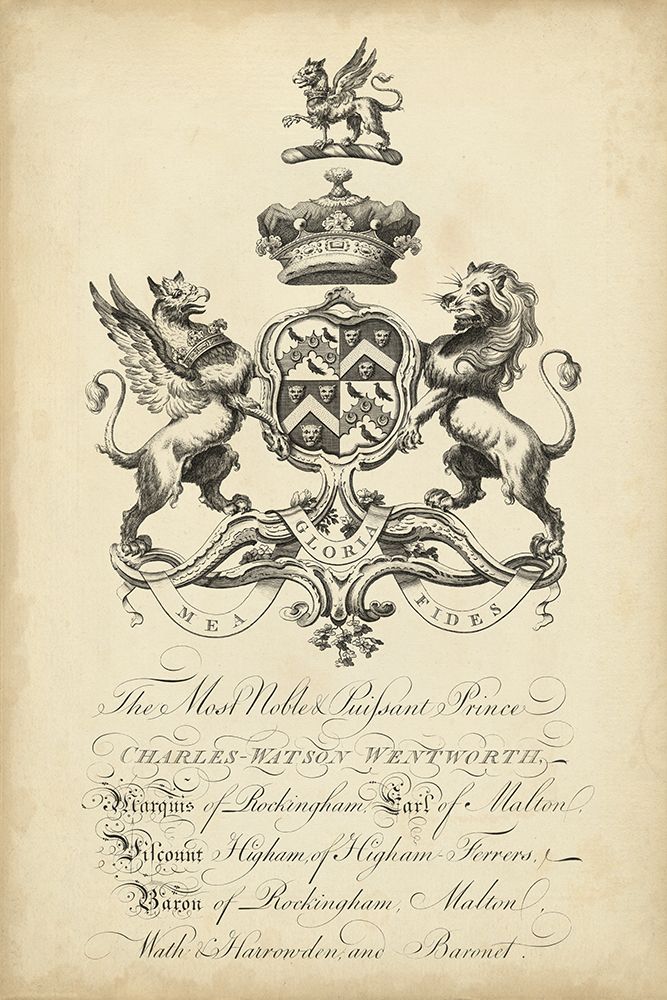 MEA GLORIA FIDES
The Most Noble & Puiſsant Prince
CHARLES-WATSON WENTWORTH,
Marquis of Rockingham, Earl of Malton,
Viſcount Higham, of Higham-Ferrers,
Baron of Rockingham, Malton,
Wath & Harrowden, and Baronet.